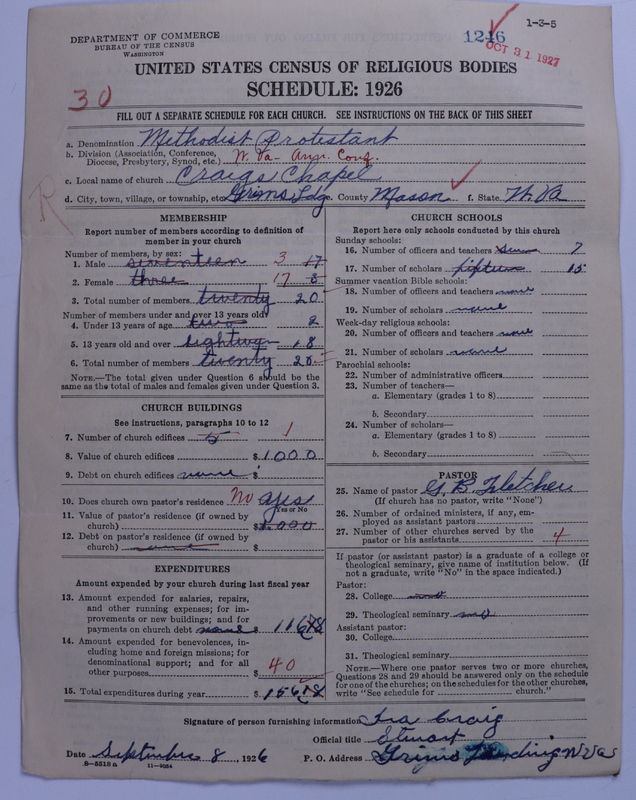 1-3-5
DEPARTMENT OF COMMERCE
BUREAU OF THE CENSUS
WASHINGTON
1246
OCT 31 1927
UNITED STATES CENSUS OF RELIGIOUS BODIES
SCHEDULE: 1926
30
FILL OUT A SEPARATE SCHEDULE FOR EACH CHURCH. SEE INSTRUCTIONS ON THE BACK OF THIS SHEET
a. Denomination Methodist Protestant
b. Division (Association, Conference, Diocese, Presbytery, Synod, etc.) W. Va- Ann. Conf.
c. Local name of church Craigs Chapel
d. City, town, village, or township, etc Grims Ldg. County Mason f. State W. Va
MEMBERSHIP
Report number of members according to definition of
member in your church
Number of members, by sex:
1. Male seventeen 3 17
2. Female three 17 3
3. Total number of members twenty 20
Number of members under and over 13 years old:
4. Under 13 years of age two 2
5. 13 years old and over eighteen 18
6. Total number of members twenty 20
NOTE.—The total given under Question 6 should be the
same as the total of males and females given under Question 3.
CHURCH BUILDINGS
See instructions, paragraphs 10 to 12
7. Number of church edifices 1
8. Value of church edifices $1000
9. Debt on church edifices none $
10. Does church own pastor's residence No yes
Yes or No
11. Value of pastor's residence (if owned by
church) $1.000
12. Debt on pastor's residence (if owned by
church) none $
EXPENDITURES
Amount expended by your church during last fiscal year
13. Amount expended for salaries, repairs,
and other running expenses; for im-
provements or new buildings; and for
payments on church debt none $
14. Amount expended for benevolences, in-
cluding home and foreign missions; for
denominational support; and for all
other purposes $ 40
15. Total expenditures during year $
CHURCH SCHOOLS
Report here only schools conducted by this church
Sunday schools:
16. Number of officers and teachers seven 7
17. Number of scholars fifteen 15
Summer vacation Bible schools:
18. Number of officers and teachers none
19. Number of scholars none
Week-day religious schools:
20. Number of officers and teachers none
21. Number of scholars none
Parochial schools:
22. Number of administrative officers
23. Number of teachers—
a. Elementary (grades 1 to 8)
b. Secondary
24. Number of scholars—
a. Elementary (grades 1 to 8)
b. Secondary
PASTOR
25. Name of pastor G. B. Fletcher
(If church has no pastor, write "None")
26. Number of ordained ministers, if any, em-
ployed as assistant pastors
27. Number of other churches served by the
pastor or his assistants 4
If pastor (or assistant pastor) is a graduate of a college or
theological seminary, give name of institution below. (If
not a graduate, write "No" in the space indicated.)
Pastor:
28. College
29. Theological seminary no
Assistant pastor:
30. College
31. Theological seminary
NOTE.—Where one pastor serves two or more churches,
Questions 28 and 29 should be answered only on the schedule
for one of the churches; on the schedules for the other churches,
write "See schedule for church."
Signature of person furnishing information Ira Craig
Official title Stewart
Date September 8, 1926 P. O. Address Grims Landing W Va
8-5518a 11-9064